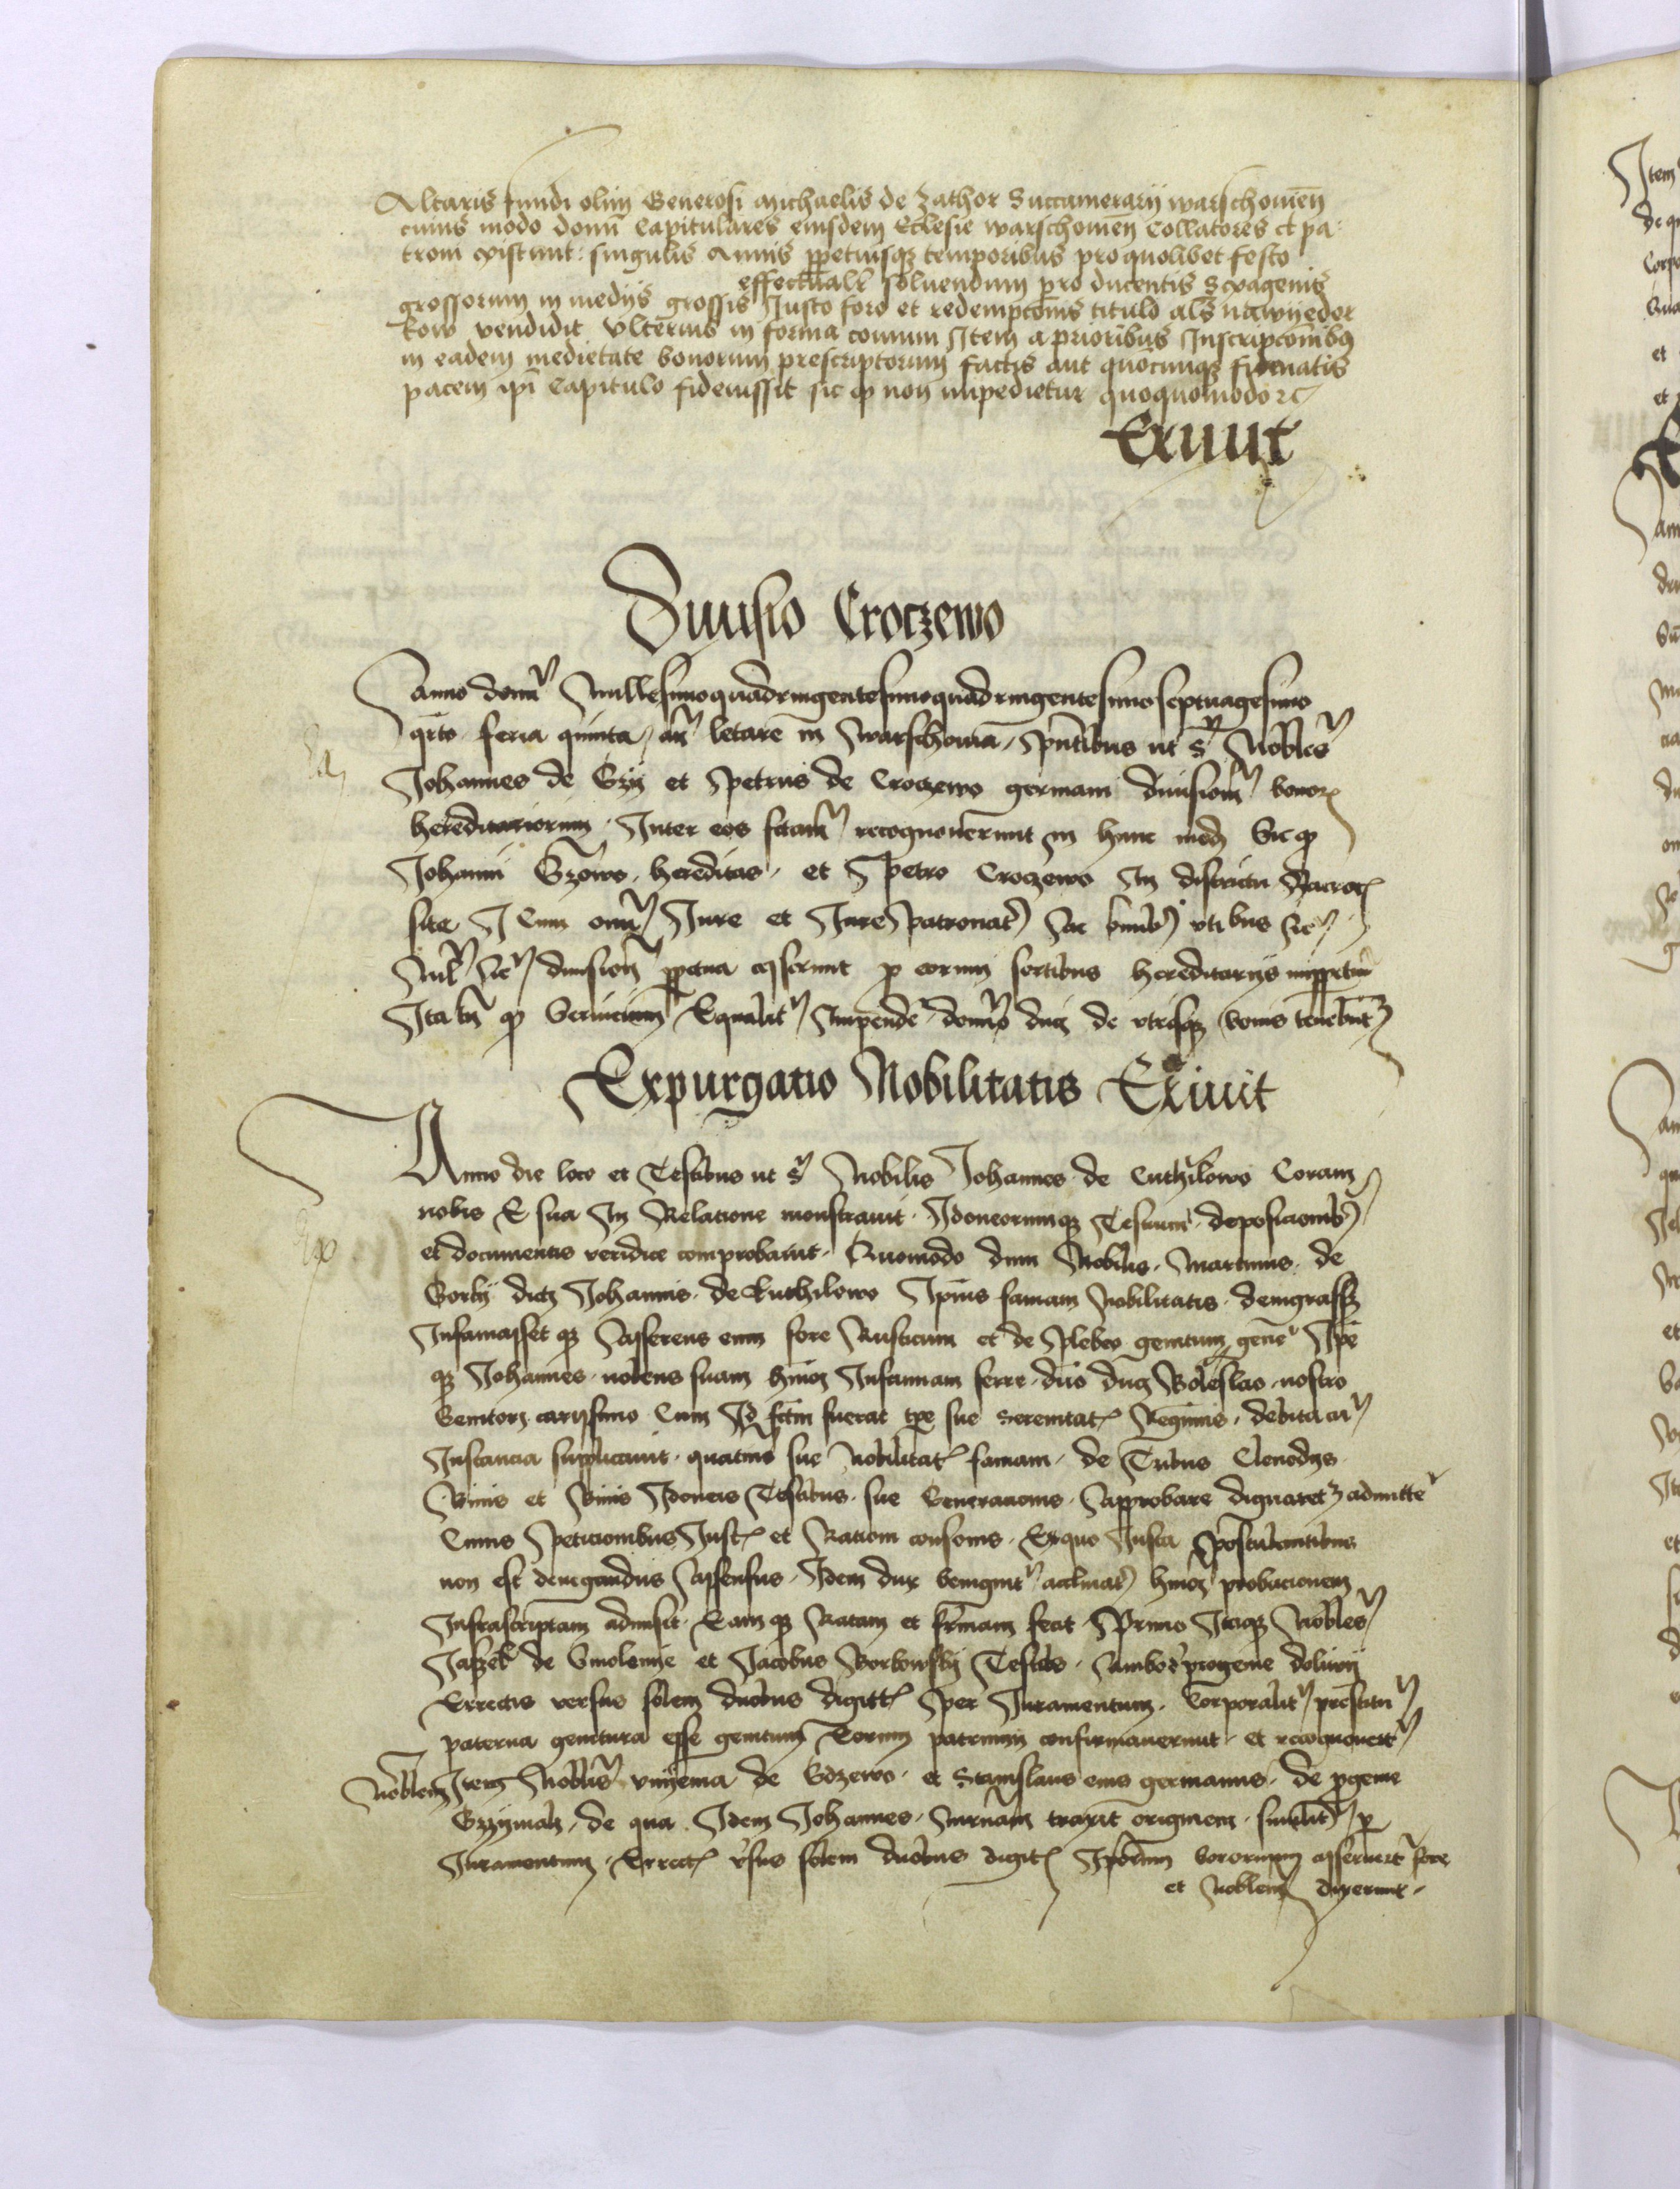 Altaris fundi olim Generosi Michaelis de Zathor Succamerarij warschouien̄
cuius modo domī Capitulares eiusdem Ecclesie warschouien̄ Collatores et pa
troni existunt singulis Annis ꝑpetuisqꝫ temporibus pro quolibet festo
effectualr̄ soluendum pro ducentis Sexagenis
grossorum in medijs grossis Iusto foro et redempcōnis titulo als̄ nawyeder
kow vendidit Vlterius in forma comuni Item a prioribus Inscripcōnibꝰ
in eadem medietate bonorum prescriptorum factis aut quocunqꝫ
pacem ipī Capitulo fideiussit sic ꝙ non impedietur quoquomodo ꝛc
Exiuit
Diuisio Croczewo
Anno domī Millesimoquadringentesimoquadringentesimoseptuagesimo
qrto feria quinta an̄ letare in Warschouia, Pn̄tibus ut sͣ Nobiles
Johannes de Gzy et Petrus de Croczewo germani diuisionem bonoꝝ
hereditariorum Inter eos fctam̄ recognouerunt in hunc modū Sic ꝙ
Johanni Gzowo hereditas et Petro Croczewo In districtu Zacroc
site Cum omī Iure et Iure Patronatꝰ
diuision ꝑpetua ꝑ eorum sortibus hereditarijs
Ita tn̄ ꝙ Seruicium Equalitꝰ Impende domīo duci de vtrisqꝫ bonis tenebūtꝫ
Expurgatio Nobilitatis Exiuit
Anno die loco et Testibus ut sͣ Nobilis Johannes de Cuthilowo Coram
nobis E sua In Relatione monstrauit Idoneorumqꝫ Testium deposicionibꝰ
et documentis veridice comprobauit Quomodo dum Nobilis Martinus de
Gorky dictꝫ Johannis de Kuthilowo Ipīus famam Nobilitatis denigrassꝫ
Infamassetqꝫ Asserens eum fore Rusticum et de Plebeo genitum gene Ipē
qꝫ Johannes nolens suam hmōi Infamiam ferre dno duci Boleslao nostro
Genitori carissimo Cum Id fctm̄ fuerat tpe sue Serenitatꝭ Regiminis, debita cū
Instancia supplicauit quatinus sue Nobilitatꝭ famam de Tribus Clenodys
Binis et Binis Idoneis Testibus sue Generacionis Approbare dignaretꝫ admitte
Cuius Peticionibus Iustꝭ et Rationi consonis Exquo Iusta Postulantibus
non est denegandus Assensus Idem dux benignit hmōi probacionem
Infrascriptam admisit Eamqꝫ Ratam et firmam fecit Primo Itaqꝫ Nobiles
de Smolenye et Jacobus Borkowsky Testes Ambo progenie doliwy
Erectis versus solem duobus digitꝭ Per Iuramentum Corporalitꝰ prestitū
paterna genitura esse genitum Eorum patruum confirmauerunt et recognouert
Nobilem Item Nobiles de Gdzewo et Stanislaus eius germanus de ꝓgenie
Grzymaly, de qua Idem Johannes Maternam traxit originem similitꝰ ꝑ
Iuramentum Erectꝭ vs̄us solem duobus digitꝭ Ipōrum Sororium asseruert̄ fore
et Nobilem dixerunt